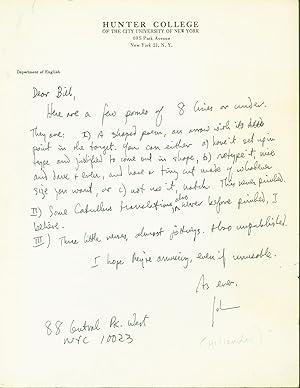 HUNTER COLLEGE
OF THE CITY UNIVERSITY OF NEW YORK
695 Park Avenue
New York 21, N. Y.
Department of English
Dear Bill,
Here are a few poems of 8 lines or under.
They are: I) A shaped poem, an arrow with its
point in the target. You can either a) have it set up in
type and justified to come out in shape, b) retype it, nice
and dark & even, and have a tiny cut made of whatever
size you want, or c) not use it, natch. This never pub'd.
II) Some Catullus translations, also never before pub'd, I
believe.
III) Three little verses, almost jottings. Also unpublished.
I hope they're amusing, even if unusable.
As ever,
John
88 Central Pk. West
NYC 10023
(Hollander)